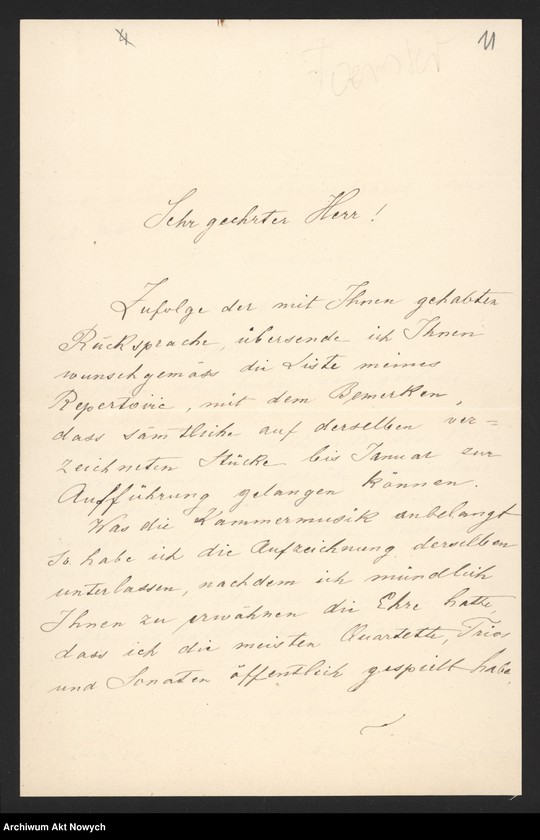 4
11
Sehr geehrter Herr!
Zufolge der mit Ihnen gehabten
Rücksprache, übersende ich Ihnen
wunschgemäss die Liste meines
Repertoire, mit dem Bemerken,
dass sämtliche auf derselben ver=
zeichneten Stücke bis Januar zur
Aufführung gelangen können.
Was die Kammermusik anbelangt
so habe ich die Aufzeichnung derselben
unterlassen, nachdem ich mündlich
Ihnen zu erwähnen die Ehre hatte,
dass ich die meisten Quartette, Trios
und Sonaten öffentlich gespielt habe.
Archiwum Akt Nowych